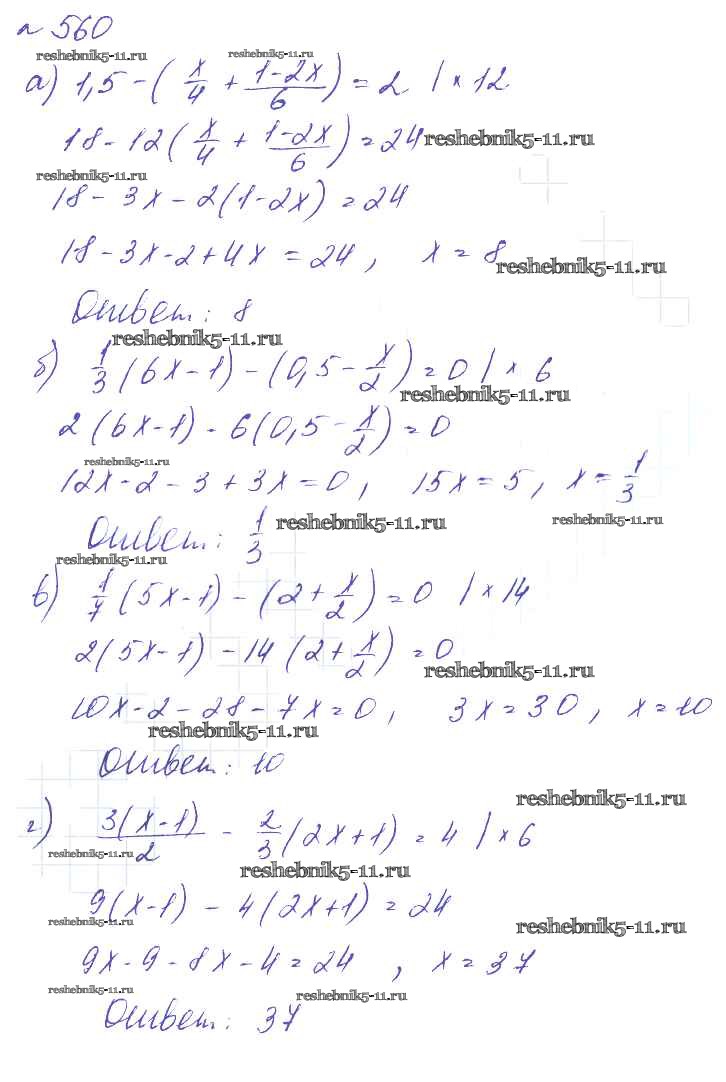 № 560
reshebnik5-11.ru reshebnik5-11.ru
а) 1,5 - (x/4 + (1-2x)/6) = 2 | × 12
18 - 12 (x/4 + (1-2x)/6) = 24 reshebnik5-11.ru
reshebnik5-11.ru
18 - 3x - 2(1-2x) = 24
18 - 3x - 2 + 4x = 24, x = 8
reshebnik5-11.ru
Ответ: 8
reshebnik5-11.ru
б) 1/3 (6x-1) - (0,5 - x/2) = 0 | × 6
reshebnik5-11.ru
2 (6x-1) - 6(0,5 - x/2) = 0
reshebnik5-11.ru
12x - 2 - 3 + 3x = 0, 15x = 5, x = 1/3
Ответ: 1/3 reshebnik5-11.ru reshebnik5-11.ru
reshebnik5-11.ru
в) 1/7 (5x-1) - (2 + x/2) = 0 | × 14
2(5x-1) - 14 (2 + x/2) = 0
reshebnik5-11.ru
10x - 2 - 28 - 7x = 0, 3x = 30, x = 10
reshebnik5-11.ru
Ответ: 10
reshebnik5-11.ru
г) 3(x-1)/2 - 2/3 (2x+1) = 4 | × 6
reshebnik5-11.ru reshebnik5-11.ru
9(x-1) - 4(2x+1) = 24
reshebnik5-11.ru reshebnik5-11.ru
9x - 9 - 8x - 4 = 24, x = 37
reshebnik5-11.ru reshebnik5-11.ru
Ответ: 37